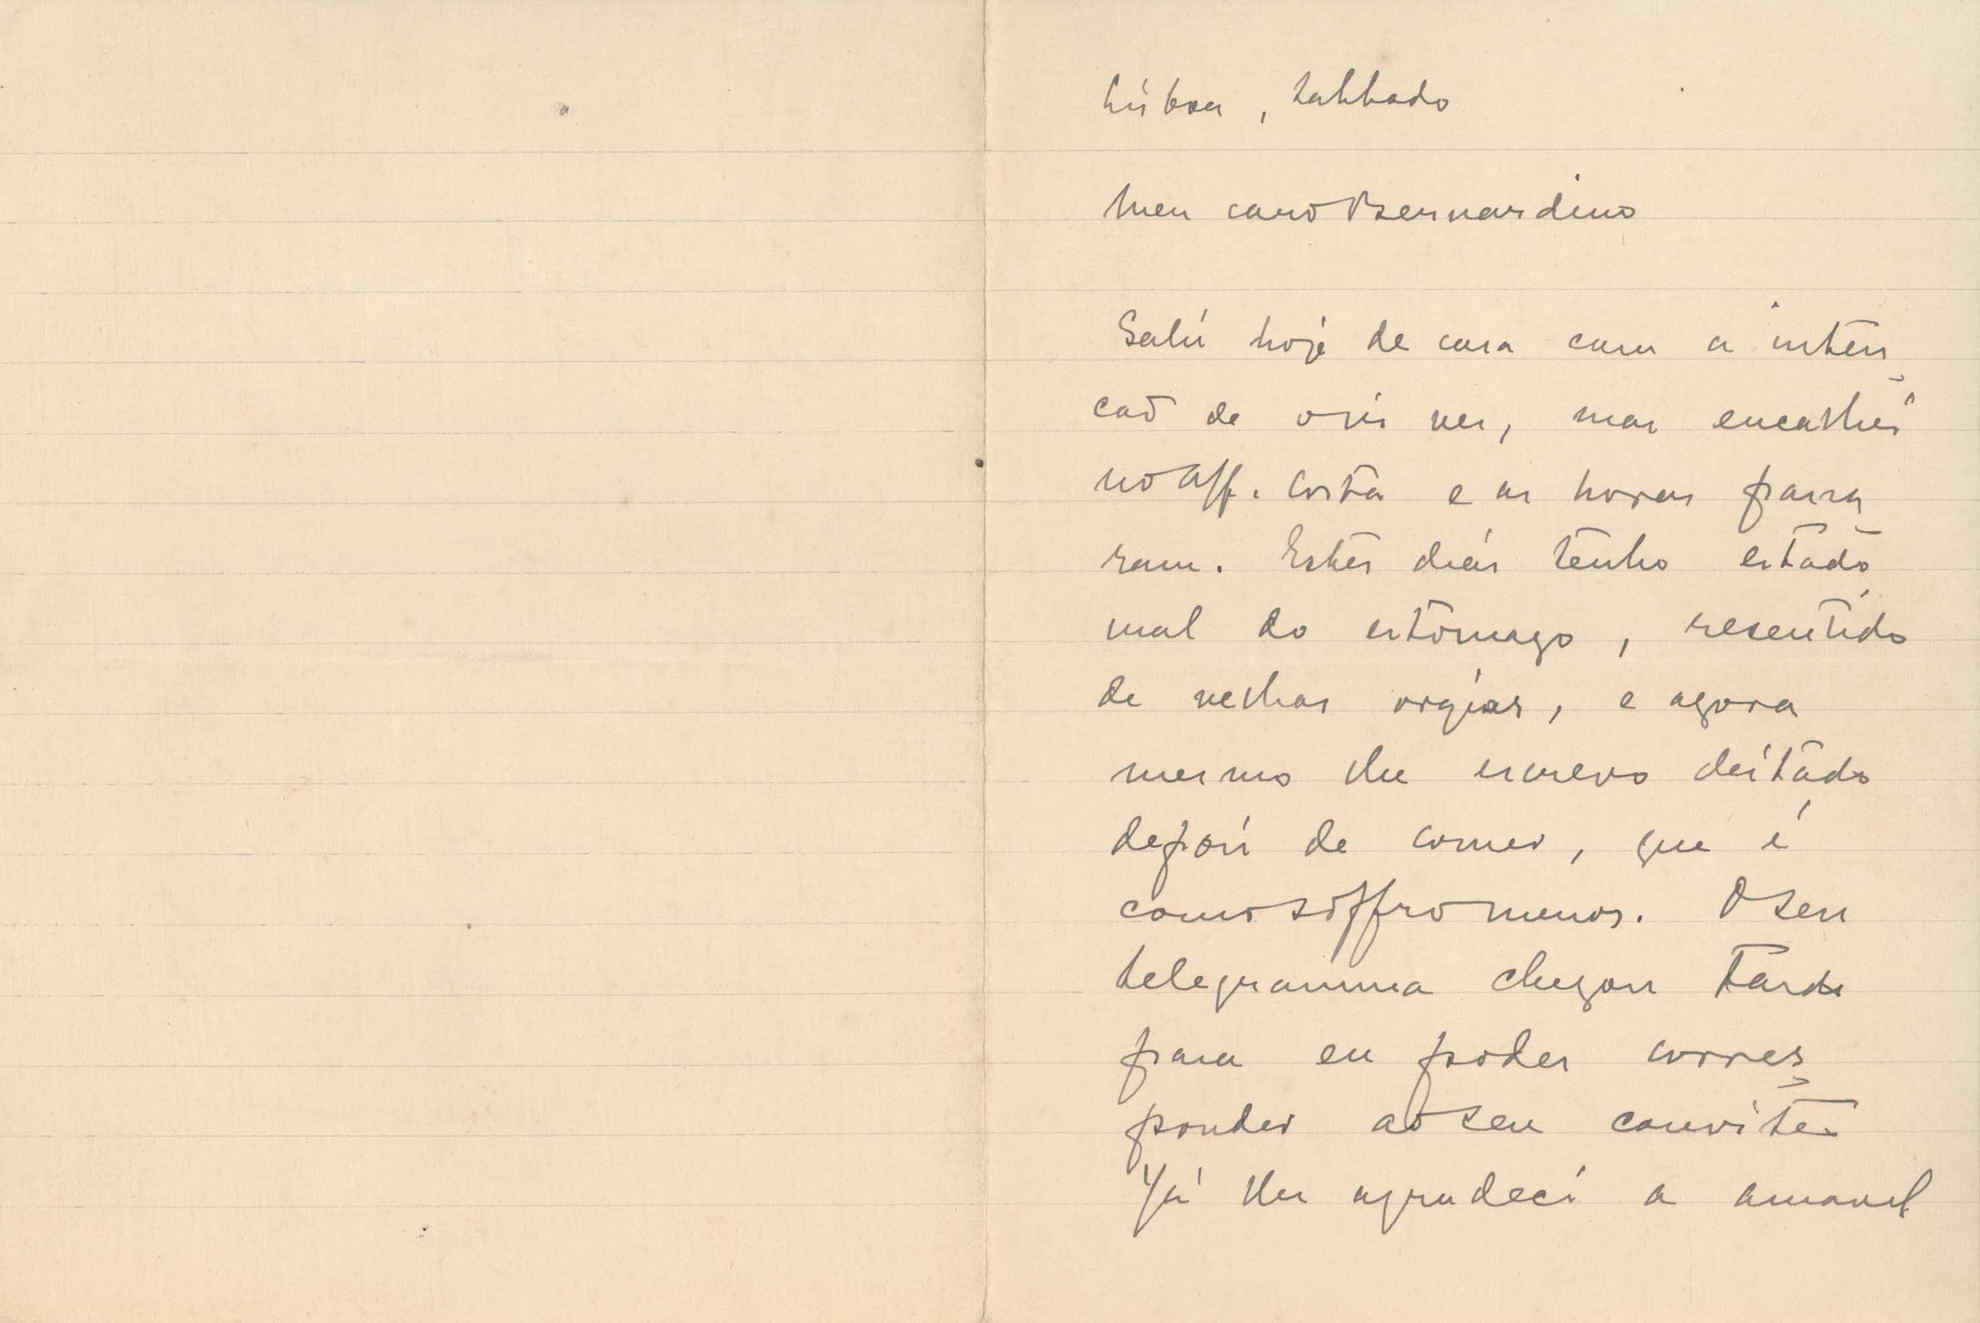 Lisboa, sabbado
Meu caro Bernardino
Sahi hoje de casa com a inten-
cão de o vir ver, mas encalhei
no Aff. Costa e as horas passa-
ram. Estes dias tenho estado
mal do estomago, resentido
de velhas orgias, e agora
mesmo lhe escrevo deitado
depois de comer, que é
como soffro menos. O seu
telegramma chegou tarde
para eu poder corres-
ponder ao seu convite.
Já lhe agradeci a amavel